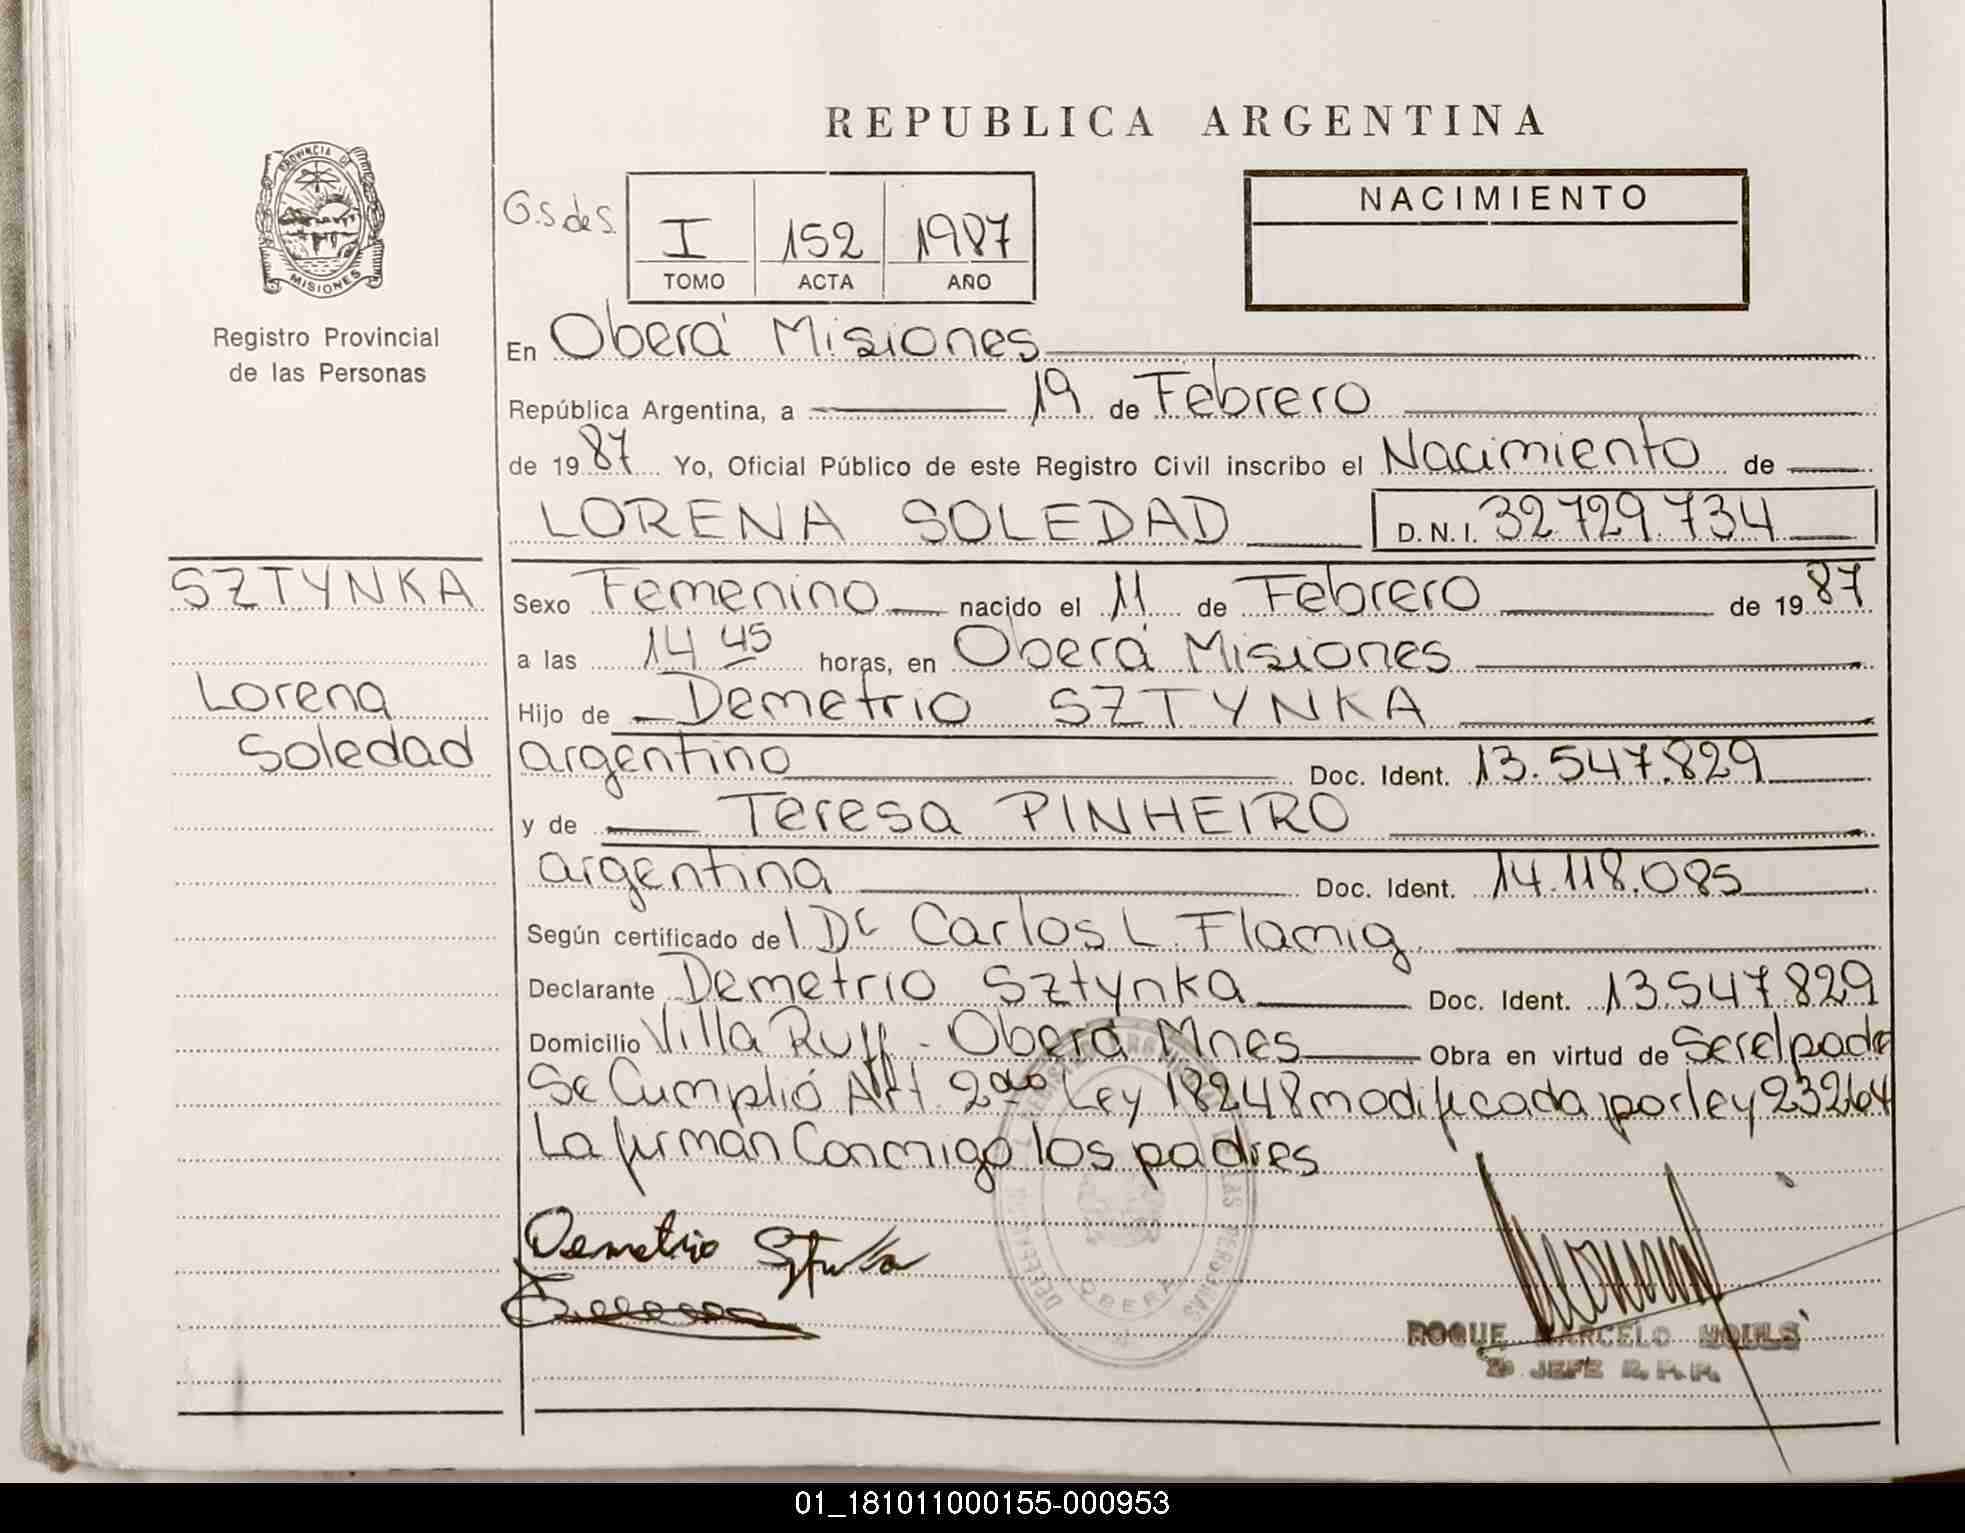 REPUBLICA ARGENTINA
PROVINCIA DE
MISIONES
Registro Provincial
de las Personas
G.S. de S.
I 152 1987
TOMO ACTA AÑO
NACIMIENTO
En Oberá Misiones
República Argentina, a 19 de Febrero
de 1987 Yo, Oficial Público de este Registro Civil inscribo el Nacimiento de
LORENA SOLEDAD D.N.I. 32.729.734
SZTYNKA
Lorena
Soledad
Sexo Femenino nacido el 11 de Febrero de 1987
a las 14 45 horas, en Oberá Misiones
Hijo de Demetrio SZTYNKA
argentino Doc. Ident. 13.547.829
y de Teresa PINHEIRO
argentina Doc. Ident. 14.118.085
Según certificado del Dr Carlos L. Flamig
Declarante Demetrio Sztynka Doc. Ident. 13.547.829
Domicilio Villa Ruff - Oberá Mnes Obra en virtud de Ser el padre
Se Cumplió Art. 2do Ley 18248 modificada por ley 23264
La firman Conmigo los padres
Demetrio
DE LAS PERSONAS
OBERA
ROQUE MARCELO
2º JEFE R.P.P.
01_181011000155-000953